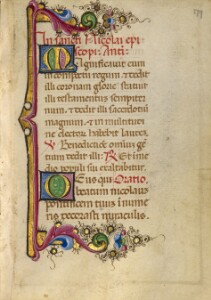 In sancti Nicolai epi
scopi Anti.
Magnificavit eum
in conspectu regum et dedit
illi coronam glorie statuit
illi testamentum sempiter
num et dedit illi sacerdotium
magnum et in multitudi
ne electorum habebit laudes
Benedictionem omnium
gentium dedit illi Et
medio populi sui exaltabitur
Deus qui Oratio.
beatum nicolaum
pontificem tuum innume
ris decorasti miraculis